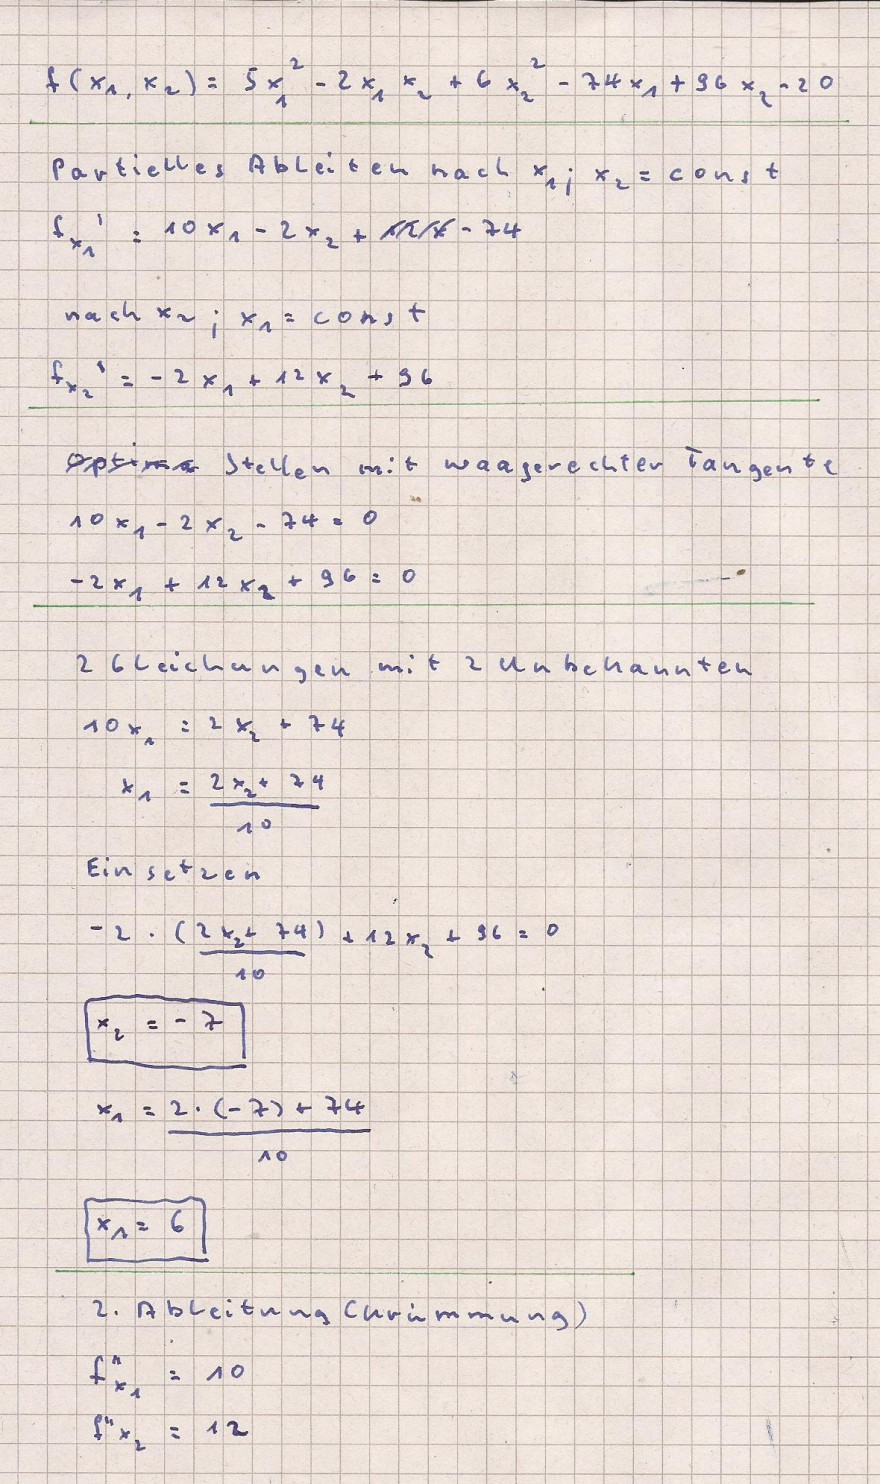 f(x₁, x₂) = 5x₁² - 2x₁x₂ + 6x₂² - 74x₁ + 96x₂ - 20
Partielles Ableiten nach x₁; x₂ = const
f x₁' = 10x₁ - 2x₂ + - 74
nach x₂; x₁ = const
f x₂' = -2x₁ + 12x₂ + 96
Optima Stellen mit waagerechter Tangente
10x₁ - 2x₂ - 74 = 0
-2x₁ + 12x₂ + 96 = 0
2 Gleichungen mit 2 Unbekannten
10x₁ = 2x₂ + 74
x₁ = 2x₂ + 74
10
Einsetzen
-2 · (2x₂ + 74) + 12x₂ + 96 = 0
10
x₂ = -7
x₁ = 2·(-7) + 74
10
x₁ = 6
2. Ableitung (Krümmung)
f"x₁ = 10
f"x₂ = 12